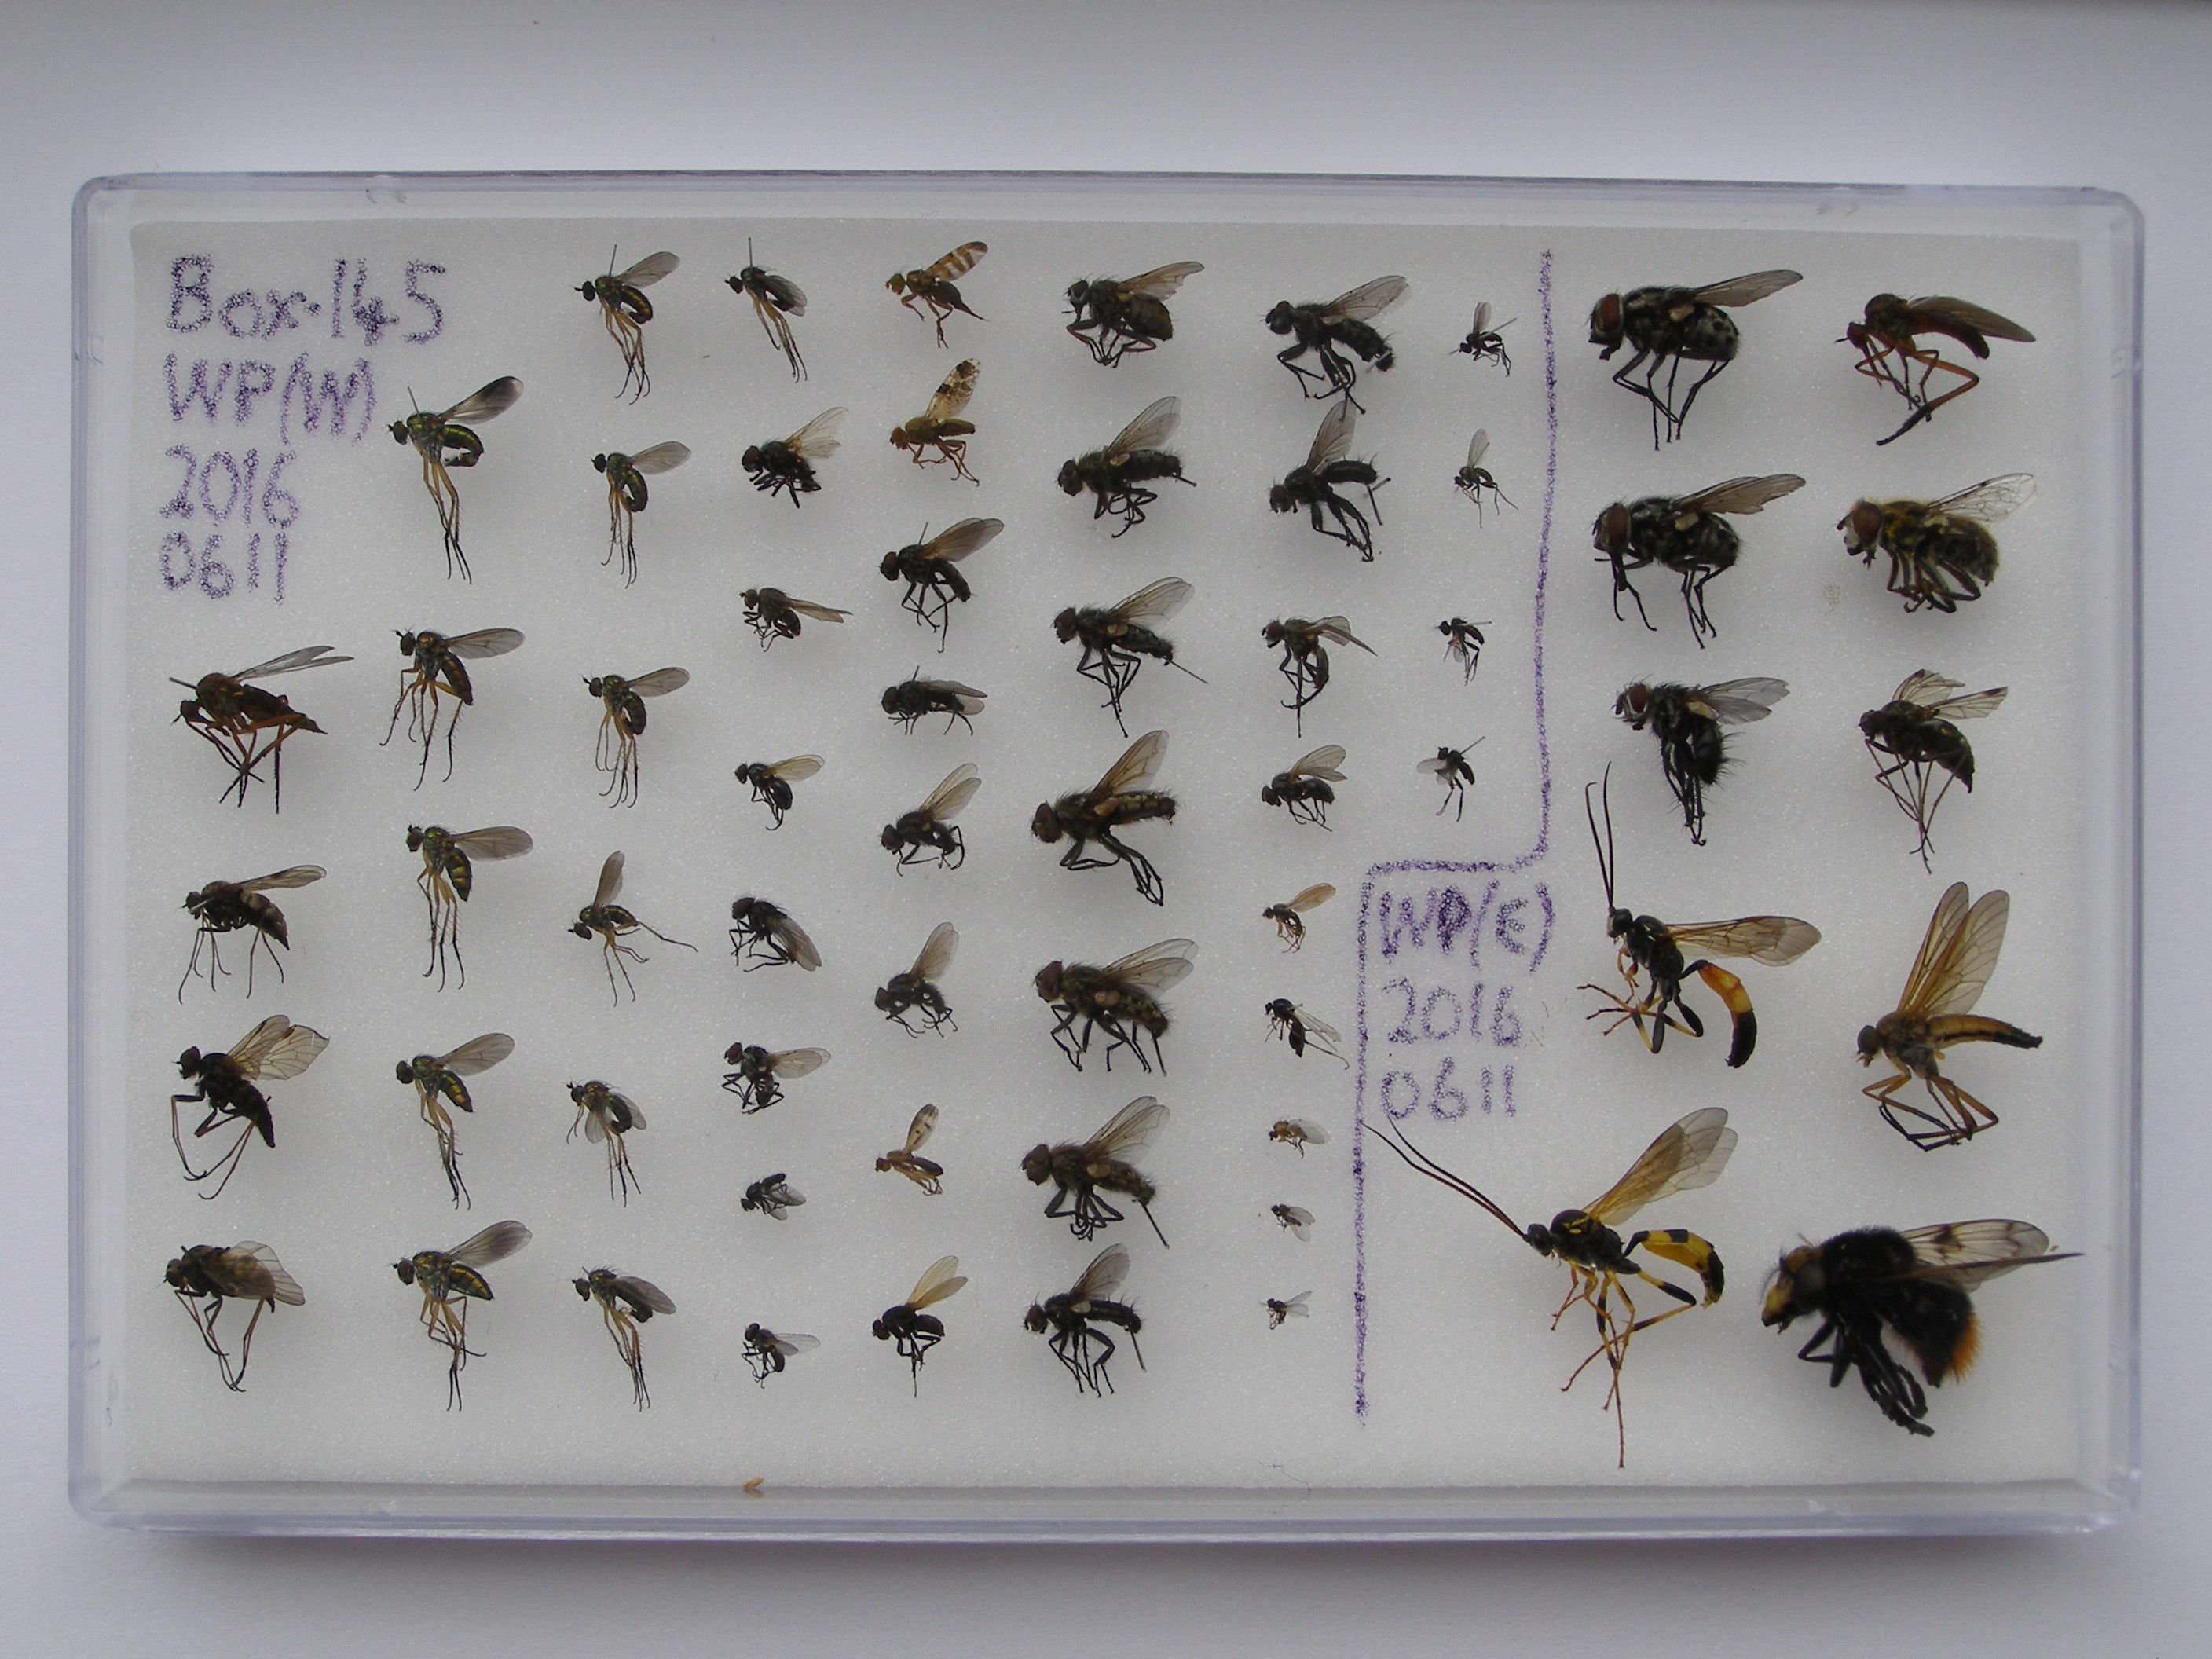 Box-145
WP(W)
2016
0611
WP(E)
2016
0611